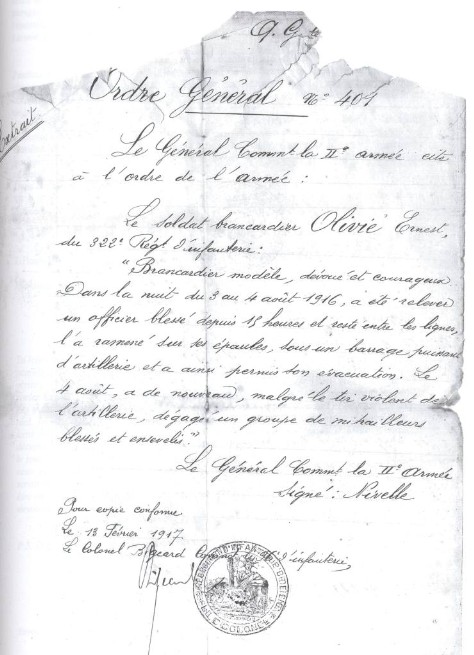 Q. G.
Ordre Général No 401
Extrait
Le Général Commt la IIe armée cite
à l'ordre de l'armée :
Le soldat brancardier Olivié Ernest,
du 322e Régt d'infanterie :
"Brancardier modèle, dévoué et courageux.
Dans la nuit du 3 au 4 août 1916, a été relever
un officier blessé depuis 15 heures et resté entre les lignes,
l'a ramené sur ses épaules, sous un barrage puissant
d'artillerie et a ainsi permis son évacuation. Le
4 août, a de nouveau, malgré le tir violent de
l'artillerie, dégagé un groupe de mitrailleurs
blessés et ensevelis."
Le Général Commt la IIe Armée
Signé : Nivelle
Pour copie conforme
Le 13 Février 1917.
Le Colonel d'infanterie,